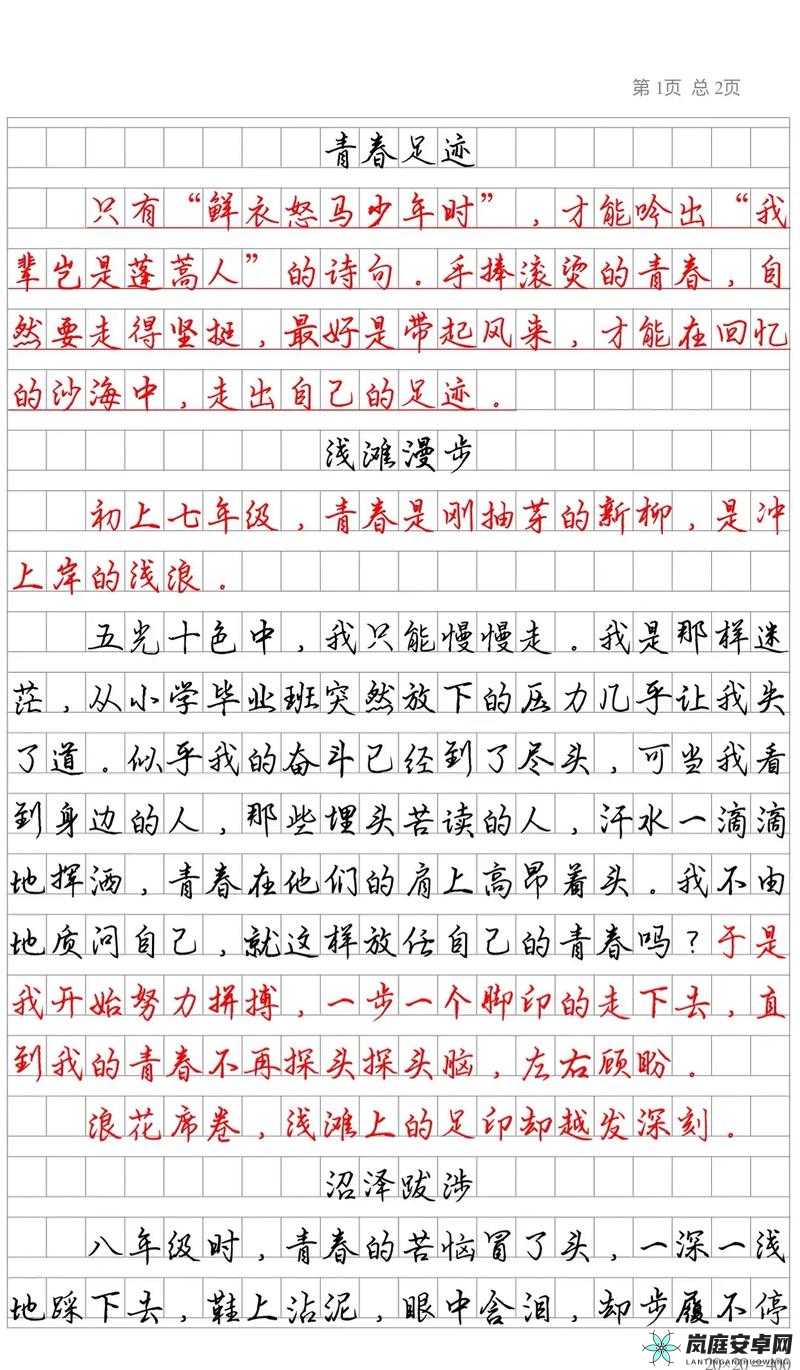 第1页 总2页
青春足迹
只有“鲜衣怒马少年时”，才能吟出“我
辈岂是蓬蒿人”的诗句。手捧滚烫的青春，自
然要走得坚挺，最好是带起风来，才能在回忆
的沙海中，走出自己的足迹。
浅滩漫步
初上七年级，青春是刚抽芽的新柳，是冲
上岸的浅浪。
五光十色中，我只能慢慢走。我是那样迷
茫，从小学毕业班突然放下的压力几乎让我失
了道。似乎我的奋斗已经到了尽头，可当我看
到身边的人，那些埋头苦读的人，汗水一滴滴
地挥洒，青春在他们的肩上高昂着头。我不由
地质问自己，就这样放任自己的青春吗？于是
我开始努力拼搏，一步一个脚印的走下去，直
到我的青春不再探头探头脑，左右顾盼。
浪花席卷，浅滩上的足印却越发深刻。
沼泽跋涉
八年级时，青春的苦恼冒了头，一深一浅
地踩下去，鞋上沾泥，眼中含泪，却步履不停
20×20=400
岚庭安卓网
LANTINGANZHUOWANG